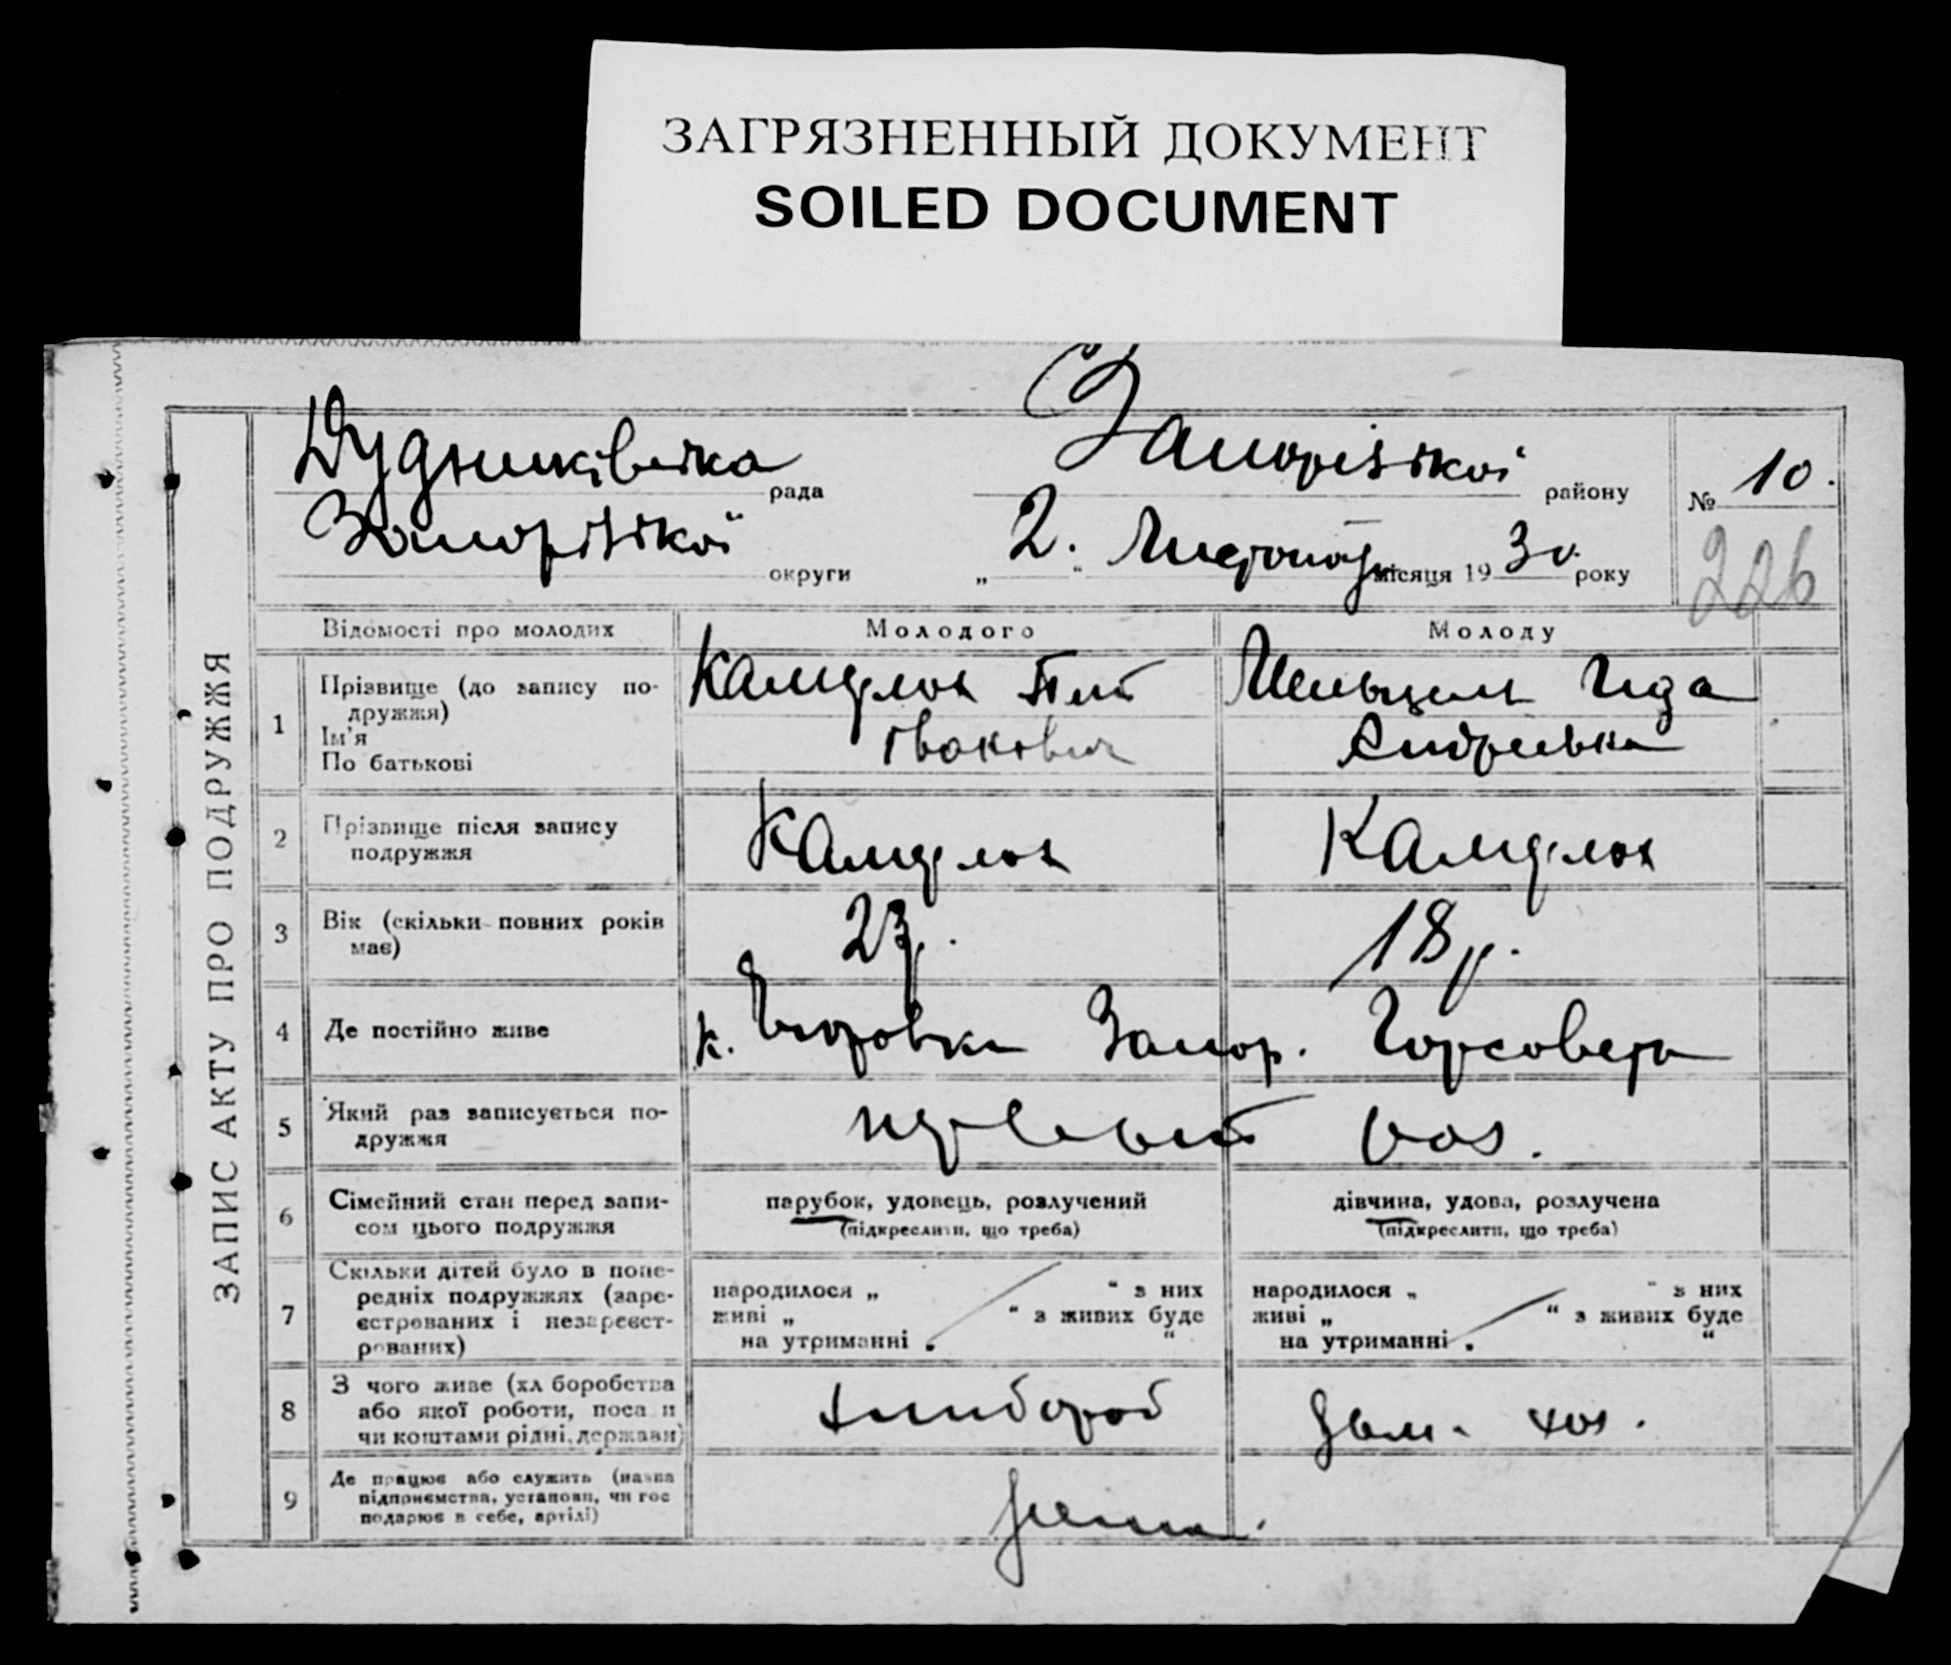 ЗАГРЯЗНЕННЫЙ ДОКУМЕНТ
SOILED DOCUMENT
ЗАПИС АКТУ ПРО ПОДРУЖЖЯ
рада
Запорізької району
№ 10.
Запорізької округи
„2.“ Листопада місяця 1930. року
226
Відомості про молодих
Молодого
Молоду
1
Прізвище (до запису по-
дружжя)
Ім'я
По батькові
Андреевна
2
Прізвище після запису
подружжя
3
Вік (скільки повних років
має)
23р.
18р.
4
Де постійно живе
к. Запор. Горсовета
5
Який раз записується по-
дружжя
первый раз.
6
Сімейний стан перед запи-
сом цього подружжя
парубок, удовець, розлучений
(підкреслити, що треба)
дівчина, удова, розлучена
(підкреслити, що треба)
7
Скільки дітей було в попе-
редніх подружжях (заре-
єстрованих і незареєст-
рованих)
народилося „ “ з них
живі „ “ з живих буде
на утриманні „ “
народилося „ “ з них
живі „ “ з живих буде
на утриманні „ “
8
З чого живе (хліборобства
або якої роботи, посади
чи коштами рідні, держави)
хлибороб
дом. хоз.
9
Де працює або служить (назва
підприємства, установи, чи гос
подарює в себе, артілі)